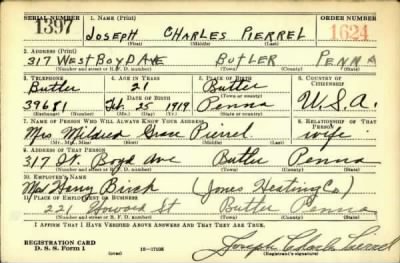 SERIAL NUMBER 1. NAME (Print) ORDER NUMBER
1397 JOSEPH CHARLES PIERREL 1624
(First) (Middle) (Last)
2. ADDRESS (Print)
317 WEST BOYD AVE BUTLER PENNA
(Number and street or R. F. D. number) (Town) (County) (State)
3. TELEPHONE 4. AGE IN YEARS 5. PLACE OF BIRTH 6. COUNTRY OF CITIZENSHIP
Butler 21 Butler
DATE OF BIRTH (Town or county)
39681 Feb. 25 1919 Penna U.S.A.
(Mo.) (Day) (Yr.) (State or country)
7. NAME OF PERSON WHO WILL ALWAYS KNOW YOUR ADDRESS 8. RELATIONSHIP OF THAT PERSON
Mrs Mildred Pierrel wife
(Mr., Mrs., Miss) (First) (Middle) (Last)
9. ADDRESS OF THAT PERSON
317 W. Boyd Ave Butler Penna
(Number and street or R. F. D. number) (Town) (County) (State)
10. EMPLOYER'S NAME
Harry Birch (Jones Heating Co)
11. PLACE OF EMPLOYMENT OR BUSINESS
221 Howard St Butler Penna
(Number and street or R. F. D. number) (Town) (County) (State)
I AFFIRM THAT I HAVE VERIFIED ABOVE ANSWERS AND THAT THEY ARE TRUE.
REGISTRATION CARD
D. S. S. Form 1 (over) Joseph Charles Pierrel
(Registrant's signature)